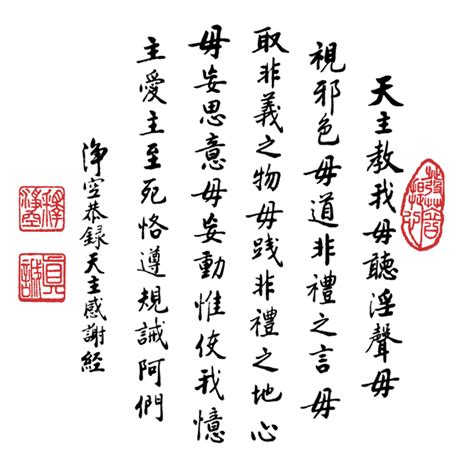 天主教我毋聽淫聲毋
視邪色毋道非禮之言毋
取非義之物毋践非禮之地心
毋妄思意毋妄動惟使我憶
主愛主至死恪遵規誡阿們
淨空恭録天主感謝经
釋淨空
真誠